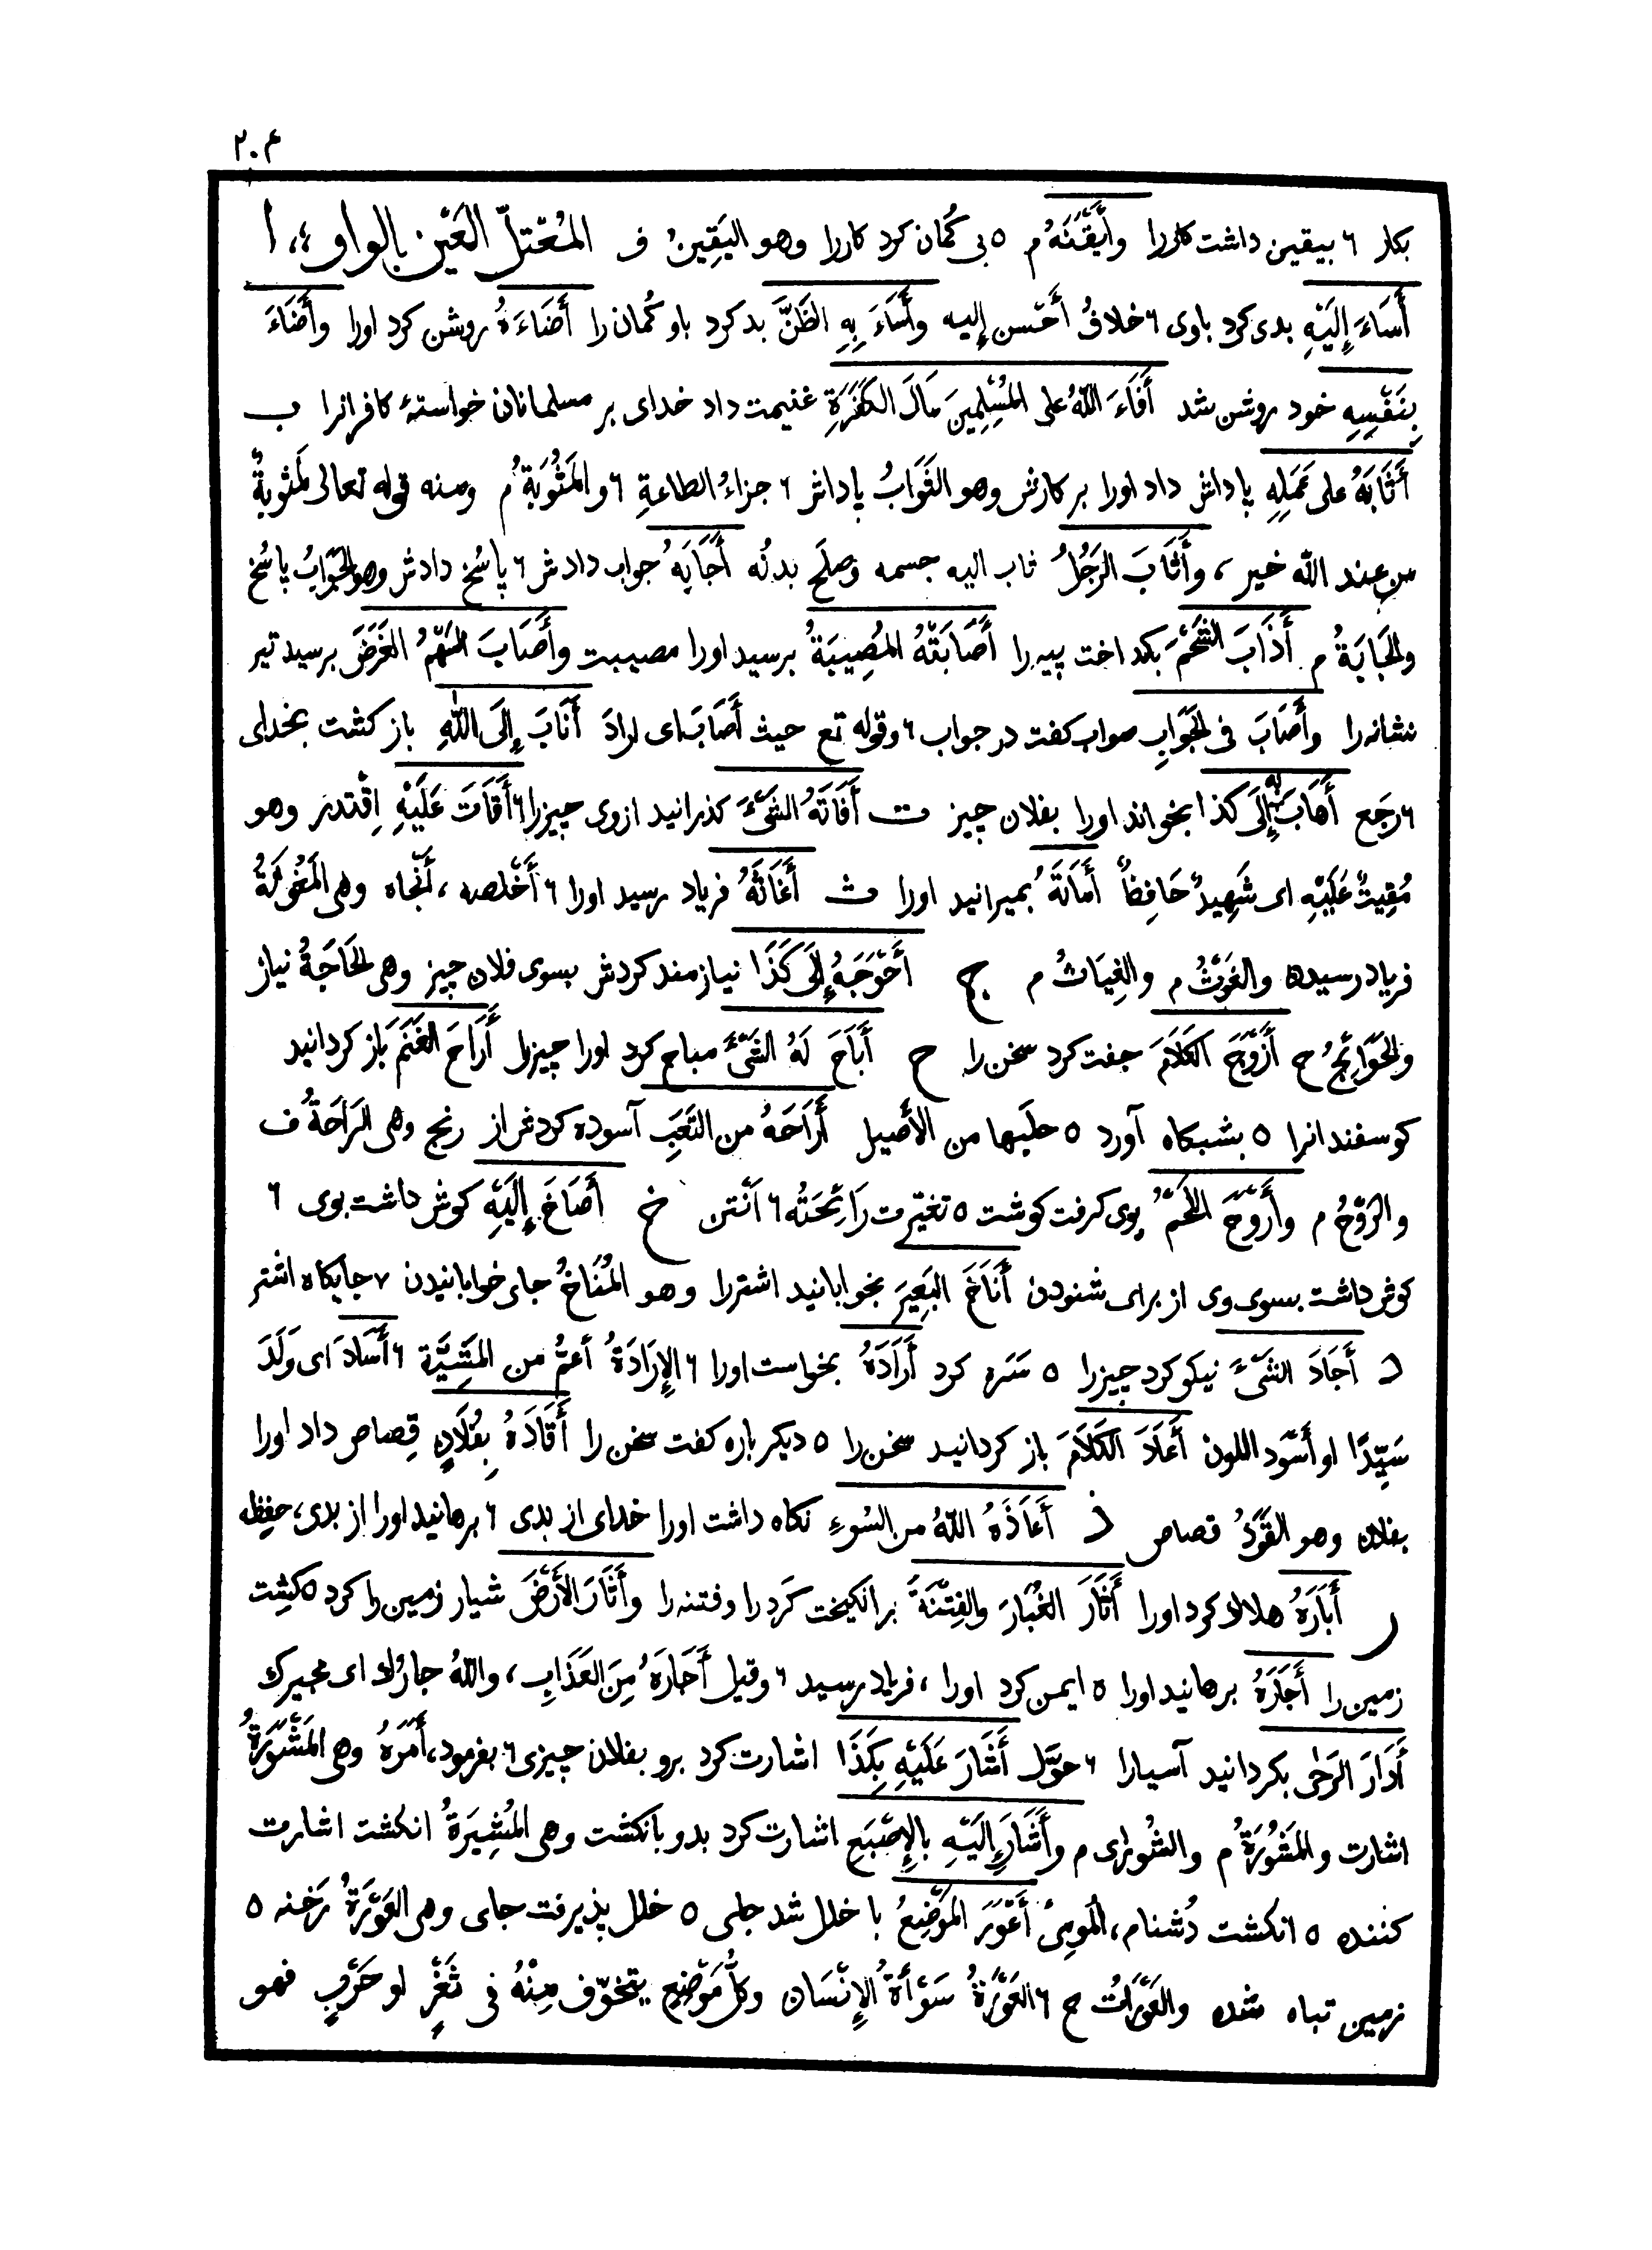 ۲۰۴
بکار ٦ بیقین داشت کاررا وأَیْقَنَهُ م ٥ بی کُمان کرد کاررا وهو الیَقِینُ ف المُعْتلّ العَیْن بالواو ،، ا
أَسَاءَ إِلَیْهِ بدی کرد باوی ٦ خلافُ أَحْسن إلیه وأَسَاءَ بِهِ الظَنَّ بد کرد باو کُمان را أَضَاءَهُ روشن کرد اورا وأَضَاءَ
بِنَفْسِهِ خود روشن شد أَفَاءَ اللّهُ علی المُسْلِمِینَ مَالَ الکَفَرَةِ غنیمت داد خدای بر مسلمانان خواستهٔ کافرانرا ب
أَثَابَهُ علی عَمَلِهِ پاداش داد اورا بر کارش وهو الثَوَابُ پاداش ٦ جزاءُ الطاعةِ ٦ والمَثُوبَةُ م ومنه قوله تعالی لَمثوبةٌ
من عند الله خیر ، وأَثَابَ الرَجُلُ ثاب الیه جسمه وصلَح بدنُه أَجَابَهُ جواب دادش ٦ پاسُخ دادش وهو الجَوَابُ پاسُخ
والجَابَةُ م أَذَابَ الشَحْمَ بکداخت پیه را أَصَابَتْهُ المُصِیبَةُ برسید اورا مصیبت وأَصَابَ السَهْمُ الغَرَضَ برسید تیر
نشانه را وأَصَابَ فی الجَوَابِ صواب کفت در جواب ٦ وقوله تع حیث أَصَابَ ای ارادَ أَنَابَ إِلَی اللّهِ باز کشت بخدای
٦ رجَع أَهَابَ بِهِ إِلَی کذا بخواند اورا بفلان چیز ت أَفَاتَهُ الشَیْءَ کذرانید ازوی چیزرا ٦ أَقَاتَ عَلَیْهِ اِقْتدر وهو
مُقِیتٌ عَلَیْهِ ای شَهِیدٌ حَافِظاً أَمَاتَهُ بمیرانید اورا ث أَغَاثَهُ فریاد رسید اورا ٦ أَخْلصه ، أَنْجاه وهی المَغُوثَةُ
فریاد رسیده والغَوْثُ م والغِیَاثُ م ج أَحْوَجَهُ إِلَی کَذَا نیازمند کردش بسوی فلان چیز وهی الحَاجَةُ نیاز
والحَوَائِجُ ح أَزْوَجَ الکَلَامَ جفت کرد سخن را ح أَبَاحَ لَهُ الشَیْءَ مباح کرد اورا چیزرا أَرَاحَ الغَنَمَ باز کردانید
کوسفندانرا ٥ بشبکاه آورد ٥ حلَبها من الأَصِیل أَرَاحَهُ من التَعَبِ آسوده کردش از رنج وهی الرَاحَةُ ف
والرَوْحُ م وأَرْوَحَ اللَحْمُ بوی کرفت کوشت ٥ تغیّرت رَائِحَتُه ٦ أَنْتن خ أَصَاخَ إِلَیْهِ کوش داشت بوی ٦
کوش داشت بسوی وی از برای شنودن أَنَاخَ البَعِیرَ بخوابانید اشتررا وهو المُنَاخُ جای خوابانیدن ٧ جایکاه اشتر
د أَجَادَ الشَیْءَ نیکو کرد چیزرا ٥ سَره کرد أَرَادَهُ بخواست اورا ٦ الإِرَادَةُ أعمُّ من المَشِیَّة ٦ أَسَادَ ای وَلَدَ
سَیِّدًا او أَسْوَد اللون أَعَادَ الکَلَامَ باز کردانید سخن را ٥ دیکر باره کفت سخن را أَقَادَهُ بِفُلَانٍ قِصاص داد اورا
بفلان وهو القَوَدُ قصاص ذ أَعَاذَهُ اللّهُ من السُوءِ نکاه داشت اورا خدای از بدی ٦ برهانید اورا از بدی ، حفِظه
ر أَبَارَهُ هلاک کرد اورا أَثَارَ الغُبَارَ والفِتْنَةَ برانکیخت کَرد را وفتنه را وأَثَارَ الأَرْضَ شیار زمین را کرد ٥ کِشت
زمین را أَجَارَهُ برهانید اورا ٥ ایمن کرد اورا ، فریاد رسید ٦ وقیل أَجَارَهُ مِنَ العَذَابِ ، واللّهُ جارُك ای مجیرك
أَدَارَ الرَحَی بکردانید آسیارا ٦ حوّل أَشَارَ عَلَیْهِ بِکَذَا اشارت کرد برو بفلان چیزی ٦ بفرمود ، أَمَرَهُ وهی المَشْوَرَةُ
اشارت والمَشُورَةُ م والشُورَی م وأَشَارَ إِلَیْهِ بِالإِصْبَعِ اشارت کرد بدو بانکشت وهی المُشِیرَةُ انکشت اشارت
کننده ٥ انکشت دُشنام ، المُومِیُ أَعْوَرَ المَوْضِعُ با خلل شد جای ٥ خلل پذیرفت جای وهی العَوْرَةُ رَخنه ٥
زمین تباه شده والعَوْرَاتُ ح ٦ العَوْرَةُ سَوْأَةُ الإِنْسَان وکلُّ مَوْضِعٍ یتخوّف مِنْهُ فی ثَغْرٍ او حَرْبٍ فهو